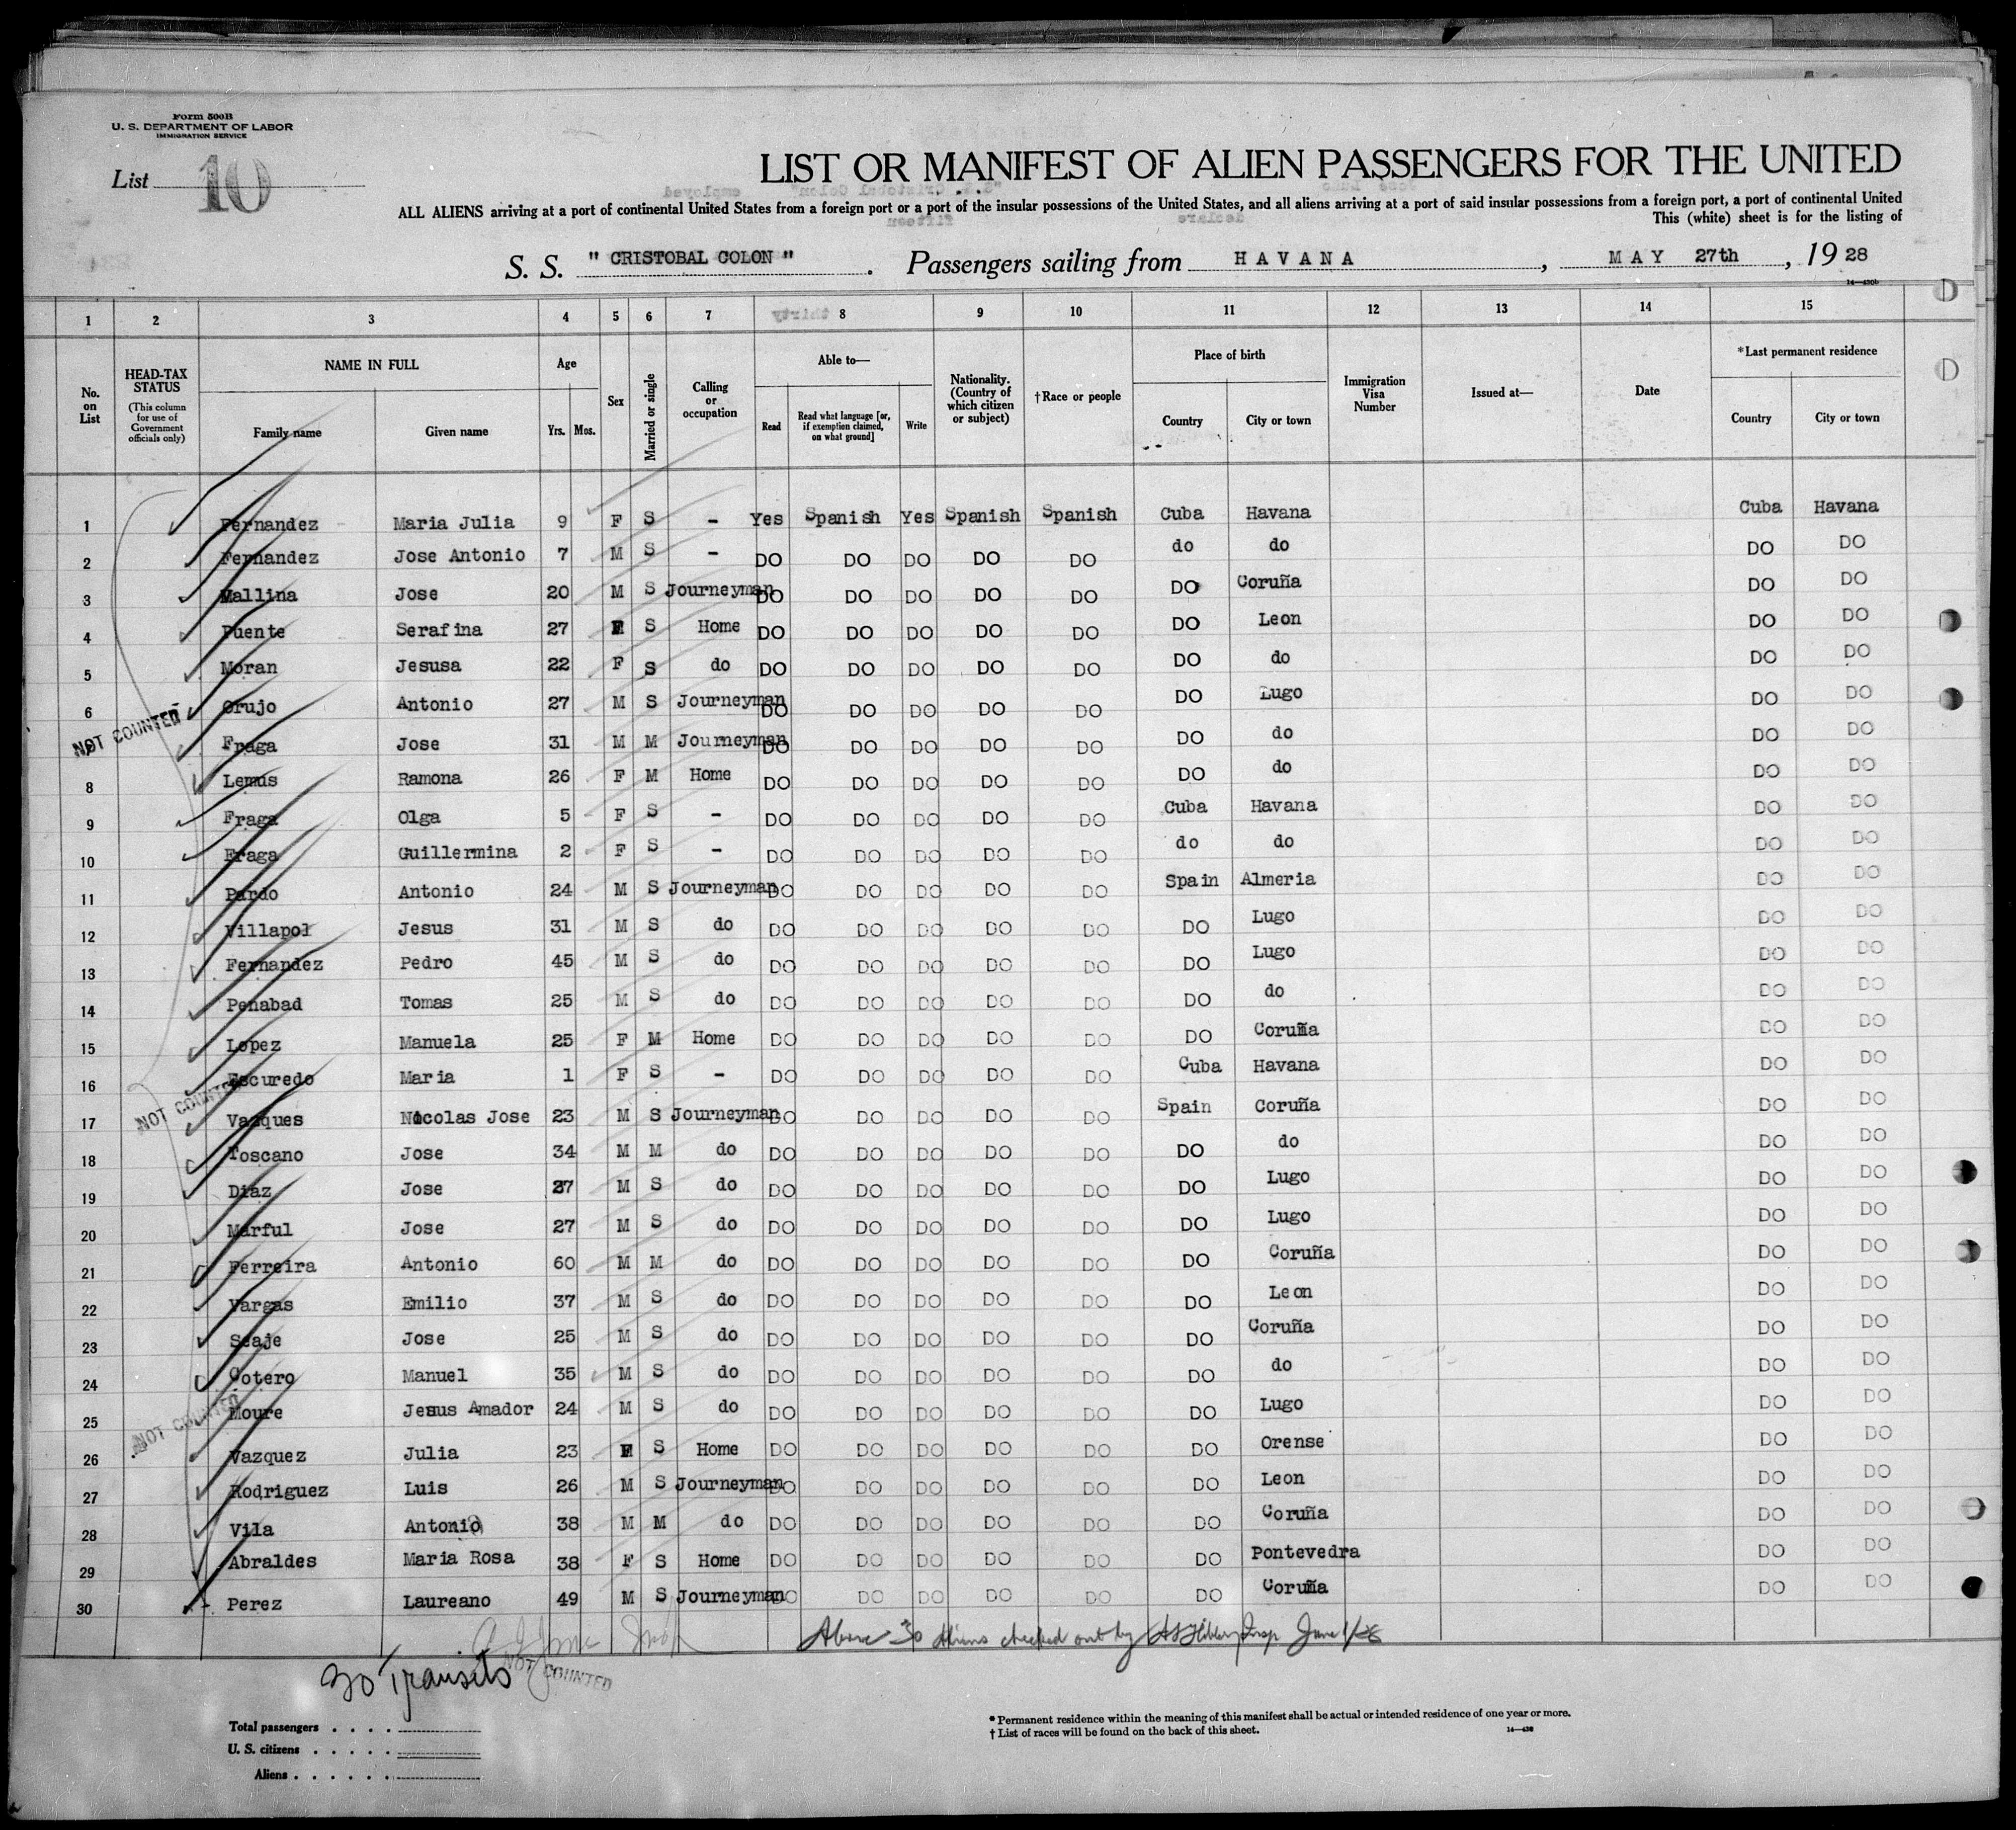 Form 500B
U. S. DEPARTMENT OF LABOR
IMMIGRATION SERVICE
List 10
LIST OR MANIFEST OF ALIEN PASSENGERS FOR THE UNITED
ALL ALIENS arriving at a port of continental United States from a foreign port or a port of the insular possessions of the United States, and all aliens arriving at a port of said insular possessions from a foreign port, a port of continental United
This (white) sheet is for the listing of
S. S. " CRISTOBAL COLON " . Passengers sailing from HAVANA , MAY 27th , 19 28
1 2 3 4 5 6 7 8 9 10 11 12 13 14 15
No. on List
HEAD-TAX STATUS (This column for use of Government officials only)
NAME IN FULL Family name Given name
Age Yrs. Mos.
Sex
Married or single
Calling or occupation
Able to— Read Read what language [or, if exemption claimed, on what ground] Write
Nationality. (Country of which citizen or subject)
†Race or people
Place of birth Country City or town
Immigration Visa Number
Issued at—
Date
*Last permanent residence Country City or town
1 Fernandez Maria Julia 9 F S - Yes Spanish Yes Spanish Spanish Cuba Havana Cuba Havana
2 Fernandez Jose Antonio 7 M S - DO DO DO DO DO do do DO DO
3 Mallina Jose 20 M S Journeyman DO DO DO DO DO DO Coruña DO DO
4 Puente Serafina 27 F S Home DO DO DO DO DO DO Leon DO DO
5 Moran Jesusa 22 F S do DO DO DO DO DO DO do DO DO
6 Orujo Antonio 27 M S Journeyman DO DO DO DO DO DO Lugo DO DO
NOT COUNTED
Fraga Jose 31 M M Journeyman DO DO DO DO DO DO do DO DO
8 Lemus Ramona 26 F M Home DO DO DO DO DO DO do DO DO
9 Fraga Olga 5 F S - DO DO DO DO DO Cuba Havana DO DO
10 Fraga Guillermina 2 F S - DO DO DO DO DO do do DO DO
11 Pardo Antonio 24 M S Journeyman DO DO DO DO DO Spain Almeria DO DO
12 Villapol Jesus 31 M S do DO DO DO DO DO DO Lugo DO DO
13 Fernandez Pedro 45 M S do DO DO DO DO DO DO Lugo DO DO
14 Penabad Tomas 25 M S do DO DO DO DO DO DO do DO DO
15 Lopez Manuela 25 F M Home DO DO DO DO DO DO Coruña DO DO
16 Escuredo Maria 1 F S - DO DO DO DO DO Cuba Havana DO DO
NOT COUNTED
17 Vazques Nicolas Jose 23 M S Journeyman DO DO DO DO DO Spain Coruña DO DO
18 Toscano Jose 34 M M do DO DO DO DO DO DO do DO DO
19 Diaz Jose 37 M S do DO DO DO DO DO DO Lugo DO DO
20 Marful Jose 27 M S do DO DO DO DO DO DO Lugo DO DO
21 Ferreira Antonio 60 M M do DO DO DO DO DO DO Coruña DO DO
22 Vargas Emilio 37 M S do DO DO DO DO DO DO Leon DO DO
23 Seaje Jose 25 M S do DO DO DO DO DO DO Coruña DO DO
24 Cotero Manuel 35 M S do DO DO DO DO DO DO do DO DO
NOT COUNTED
25 Moure Jesus Amador 24 M S do DO DO DO DO DO DO Lugo DO DO
26 Vazquez Julia 23 F S Home DO DO DO DO DO DO Orense DO DO
27 Rodriguez Luis 26 M S Journeyman DO DO DO DO DO DO Leon DO DO
28 Vila Antonio 38 M M do DO DO DO DO DO DO Coruña DO DO
29 Abraldes Maria Rosa 38 F S Home DO DO DO DO DO DO Pontevedra DO DO
30 Perez Laureano 49 M S Journeyman DO DO DO DO DO DO Coruña DO DO
Above 30 Aliens checked out by Insp June 1/28
30 Transits
NOT COUNTED
Total passengers
U. S. citizens
Aliens
* Permanent residence within the meaning of this manifest shall be actual or intended residence of one year or more.
† List of races will be found on the back of this sheet.